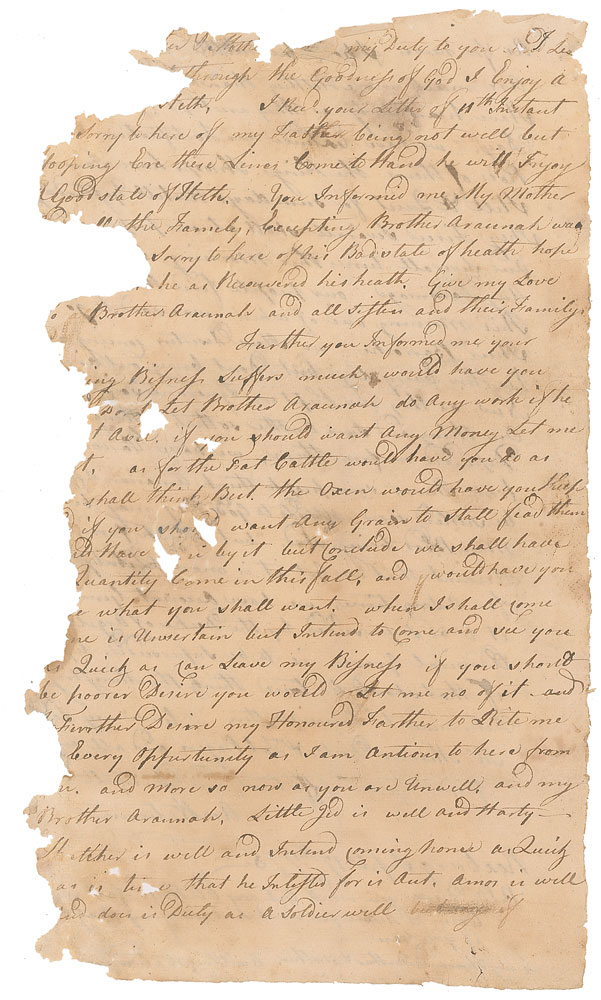 & Mother my Duty to you
through the Goodness of God I Enjoy a
Helth, I Recd. your Letter of 11th Instant
Sorry to here of my Father being not well but
hooping Ere these Lines Come to Hand he will Injoy
Good state of Helth. You Informed me My Mother
the Family, Excepting Brother Araunah was
Sorry to here of his Bad state of heath hope
he as Recovered his heath. Give my Love
Brother Araunah and all Sisters and their Familys
Further you Informed me your
Bisness Suffers much, would have you
Let Brother Araunah do Any work if he
if you should want Any Money Let me
as for the Fat Cattle would have you do as
shall think Best. the Oxen would have you Keep
if you should want Any Grain to Stall fead them
have by it but Conclude we shall have
Quantity Come in this fall, and would have you
what you shall want. when I shall come
is Unsertain but Intend to Come and see you
as Quick as can Leave my Bisness if you should
be poorer Desire you would Let me no of it. and
Furrther Desire my Honoured Farther to Rite me
Every Oppurtunity as I am Antious to here from
and more so now as you are Unwell, and my
Brother Araunah. Little Jed is well and Harty
is well and Intend coming home as Quick
as is time that he Inlisted for is Out. Amos is well
and does is Duty as a Soldier well if